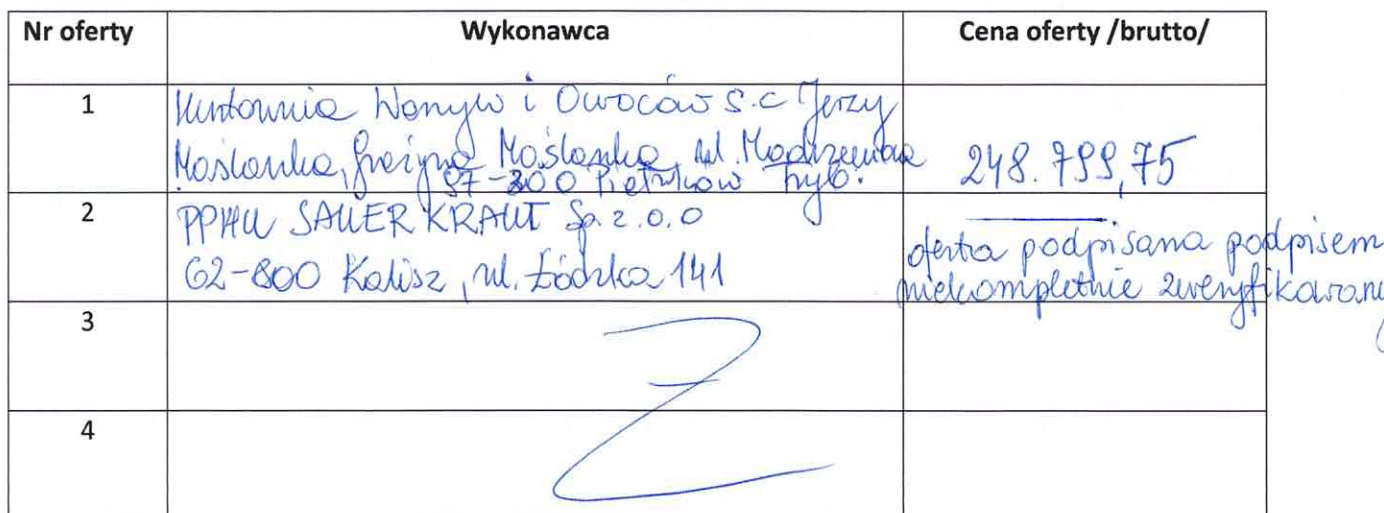 Nr oferty Wykonawca Cena oferty /brutto/
1 Hurtownia Warzyw i Owoców S.C Jerzy
Moślanka, Grażyna Moślanka, ul. 248.799,75
97-300 Piotrków Tryb.
2 PPHU SAUER KRAUT Sp. z.o.o
62-800 Kalisz, ul. Łódzka 141
oferta podpisana podpisem
niekompletnie zweryfikowany
3
4